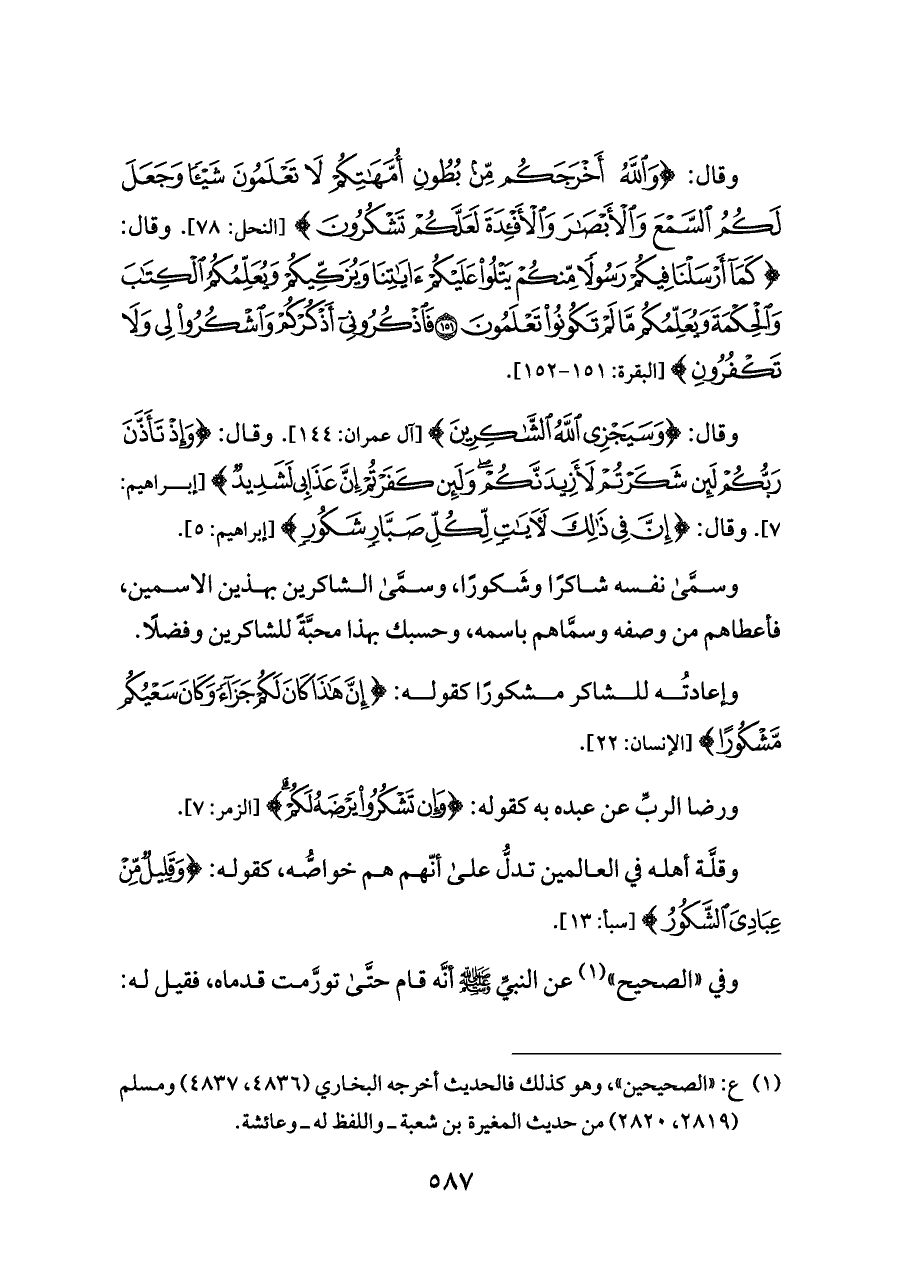 وقال: ﴿وَٱللَّهُ أَخْرَجَكُم مِّنۢ بُطُونِ أُمَّهَٰتِكُمْ لَا تَعْلَمُونَ شَيْـًٔا وَجَعَلَ
لَكُمُ ٱلسَّمْعَ وَٱلْأَبْصَٰرَ وَٱلْأَفْـِٔدَةَ لَعَلَّكُمْ تَشْكُرُونَ﴾ [النحل: ٧٨]. وقال:
﴿كَمَآ أَرْسَلْنَا فِيكُمْ رَسُولًا مِّنكُمْ يَتْلُوا۟ عَلَيْكُمْ ءَايَٰتِنَا وَيُزَكِّيكُمْ وَيُعَلِّمُكُمُ ٱلْكِتَٰبَ
وَٱلْحِكْمَةَ وَيُعَلِّمُكُم مَّا لَمْ تَكُونُوا۟ تَعْلَمُونَ ۝١٥١ فَٱذْكُرُونِىٓ أَذْكُرْكُمْ وَٱشْكُرُوا۟ لِى وَلَا
تَكْفُرُونِ﴾ [البقرة: ١٥١-١٥٢].
وقال: ﴿وَسَيَجْزِى ٱللَّهُ ٱلشَّٰكِرِينَ﴾ [آل عمران: ١٤٤]. وقال: ﴿وَإِذْ تَأَذَّنَ
رَبُّكُمْ لَئِن شَكَرْتُمْ لَأَزِيدَنَّكُمْ ۖ وَلَئِن كَفَرْتُمْ إِنَّ عَذَابِى لَشَدِيدٌ﴾ [إبراهيم:
٧]. وقال: ﴿إِنَّ فِى ذَٰلِكَ لَـَٔايَٰتٍ لِّكُلِّ صَبَّارٍ شَكُورٍ﴾ [إبراهيم: ٥].
وسمَّىٰ نفسه شاكرًا وشَكورًا، وسمَّىٰ الشاكرين بهذين الاسمين،
فأعطاهم من وصفه وسمَّاهم باسمه، وحسبك بهذا محبَّةً للشاكرين وفضلًا.
وإعادتُه للشاكر مشكورًا كقوله: ﴿إِنَّ هَٰذَا كَانَ لَكُمْ جَزَآءً وَكَانَ سَعْيُكُم
مَّشْكُورًا﴾ [الإنسان: ٢٢].
ورضا الربِّ عن عبده به كقوله: ﴿وَإِن تَشْكُرُوا۟ يَرْضَهُ لَكُمْ ۗ﴾ [الزمر: ٧].
وقلَّة أهله في العالمين تدلُّ علىٰ أنّهم هم خواصُّه، كقوله: ﴿وَقَلِيلٌ مِّنْ
عِبَادِىَ ٱلشَّكُورُ﴾ [سبأ: ١٣].
وفي «الصحيح»(١) عن النبيِّ ﷺ أنَّه قام حتَّىٰ تورَّمت قدماه، فقيل له:
(١) ع: «الصحيحين»، وهو كذلك فالحديث أخرجه البخاري (٤٨٣٦، ٤٨٣٧) ومسلم
(٢٨١٩، ٢٨٢٠) من حديث المغيرة بن شعبة ـ واللفظ له ـ وعائشة.
٥٨٧